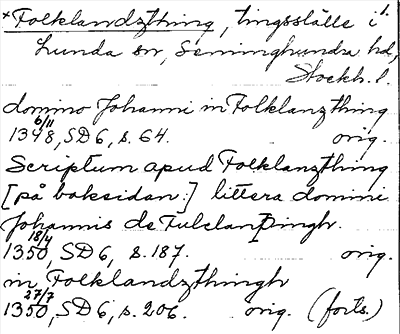 *Folklandzthing, tingsställe i
Lunda sn, Seminghundra hd,
Stockh. l.
domino Johanni in Folklanzthing
6/11
1348, SD 6, s. 64. orig.
Scriptum apud Folklanzthing
[på baksidan:] littera domini
Johannis de Fulclanþingh.
18/4
1350, SD 6, s. 187. orig.
in Folklandzthingh
27/7
1350, SD 6, s. 206. orig. (forts.)